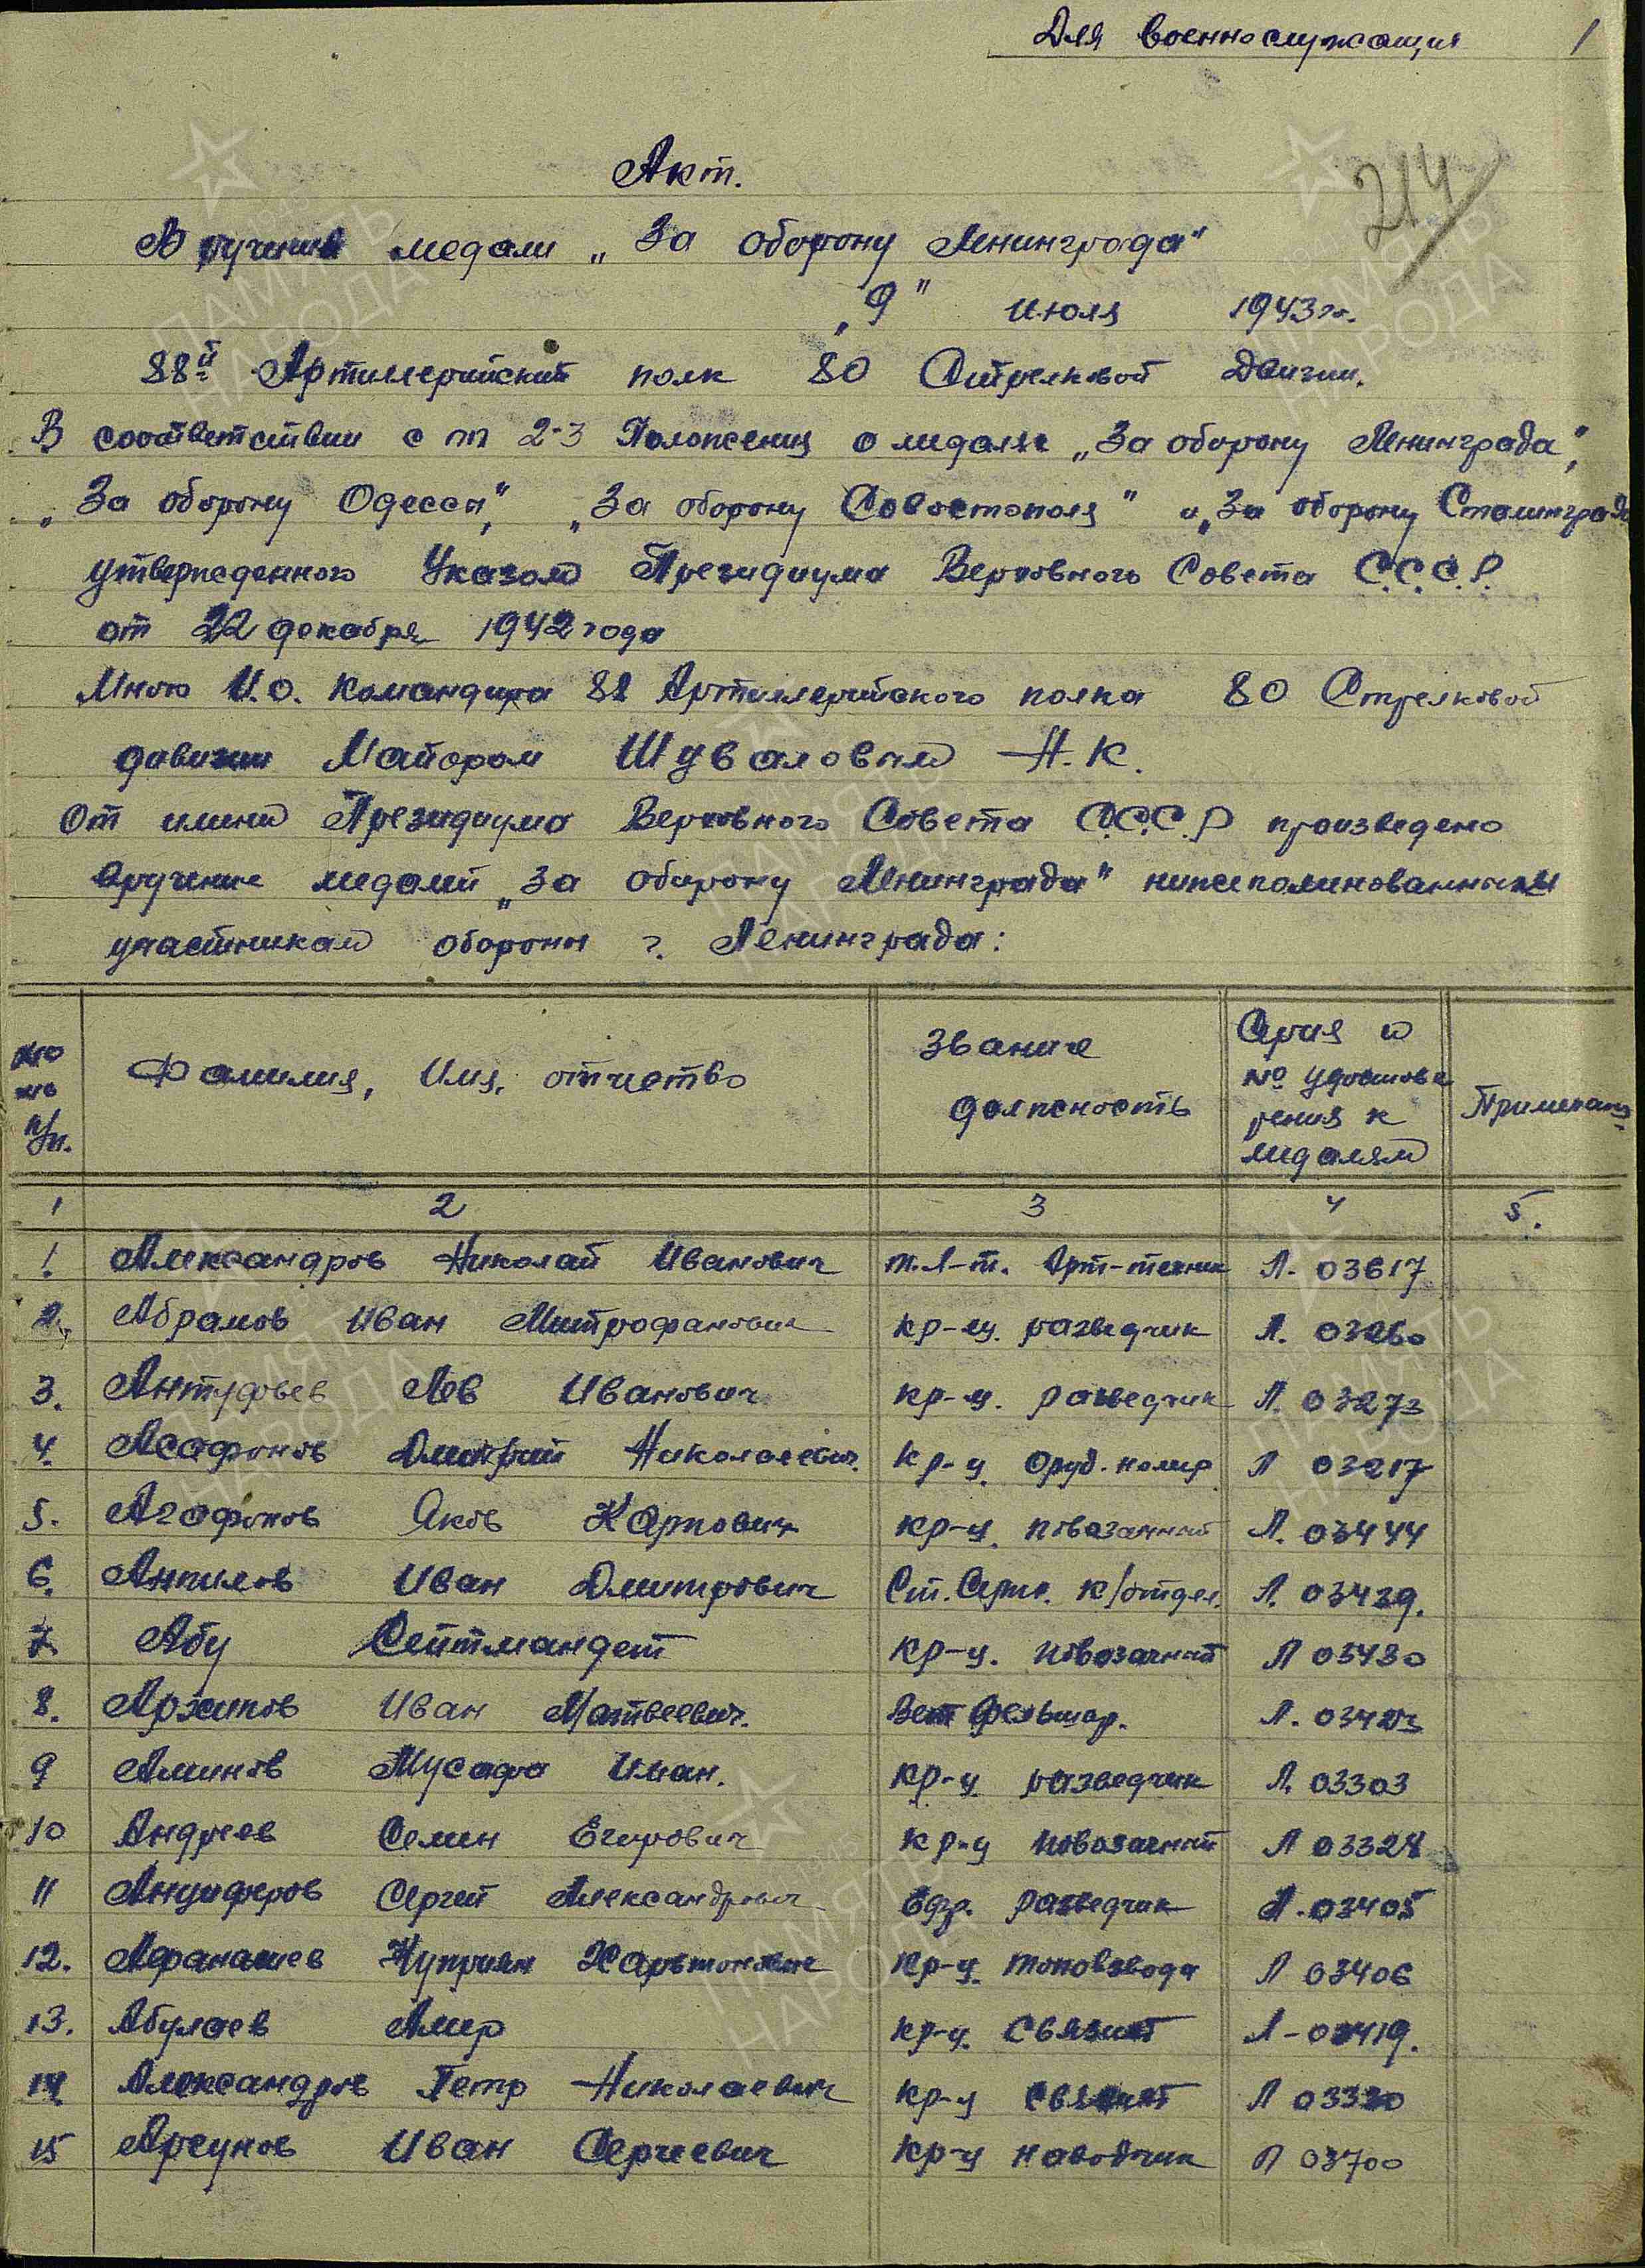 Для военнослужащих 1
214
Акт.
Вручения медали „За оборону Ленинграда"
„9" июля 1943 г.
88й Артиллерийский полк 80 Стрелковой Дивизии.
В соответствии с пп 2-3 Положения о медалях „За оборону Ленинграда",
„За оборону Одессы", „За оборону Севостополя" и „За оборону Сталинграда
утвержденного Указом Президиума Верховного Совета С.С.С.Р.
от 22 декабря 1942 года
Мною И.О. Командира 88 Артиллерийского полка 80 Стрелковой
дивизии Майором Шуваловым Н.К.
От имени Президиума Верховного Совета С.С.С.Р произведено
вручение медалей „За оборону Ленинграда" нижепоименованным
участникам обороны г. Ленинграда:
№№ п/п. Фамилия, Имя, отчество Звание должность Серия и № удостоверения к медалям Примечан.
1 2 3 4 5.
1. Александров Николай Иванович Арт-техник Л. 03617
2. Абрамов Иван Митрофанович кр-ец. разведчик Л. 03260
3. Антуфьев Лев Иванович кр-ц. разведчик Л. 03273
4. Асафонов Дмитрий Николаевич. Кр-ц. Оруд. номер Л 03217
5. Агафонов Яков Карпович кр-ц. повозочный Л. 03444
6. Анпилов Иван Дмитрович Ст. Серж. к/отдел. Л. 03439.
7 Абу Сейтмандет кр-ц. повозочный Л 03430
8. Архипов Иван Матвеевич. Вет фельшар. Л. 03423
9 Аминов Мусафа Иман. кр-ц. разведчик Л. 03303
10 Андреев Семин Егорович кр-ц повозочный Л 03328
11 Анциферов Сергей Александрович Ефр. разведчик Л. 03405
12. Афанасиев Куприян Харитонович Кр-ц. топовзвода Л 03406
13. Абулаев Амир кр-ц. Связист Л-03419.
14 Александров Петр Николаевич кр-ц связист Л 03320
15 Арсунов Иван Сергеевич кр-ц наводчик Л 03700